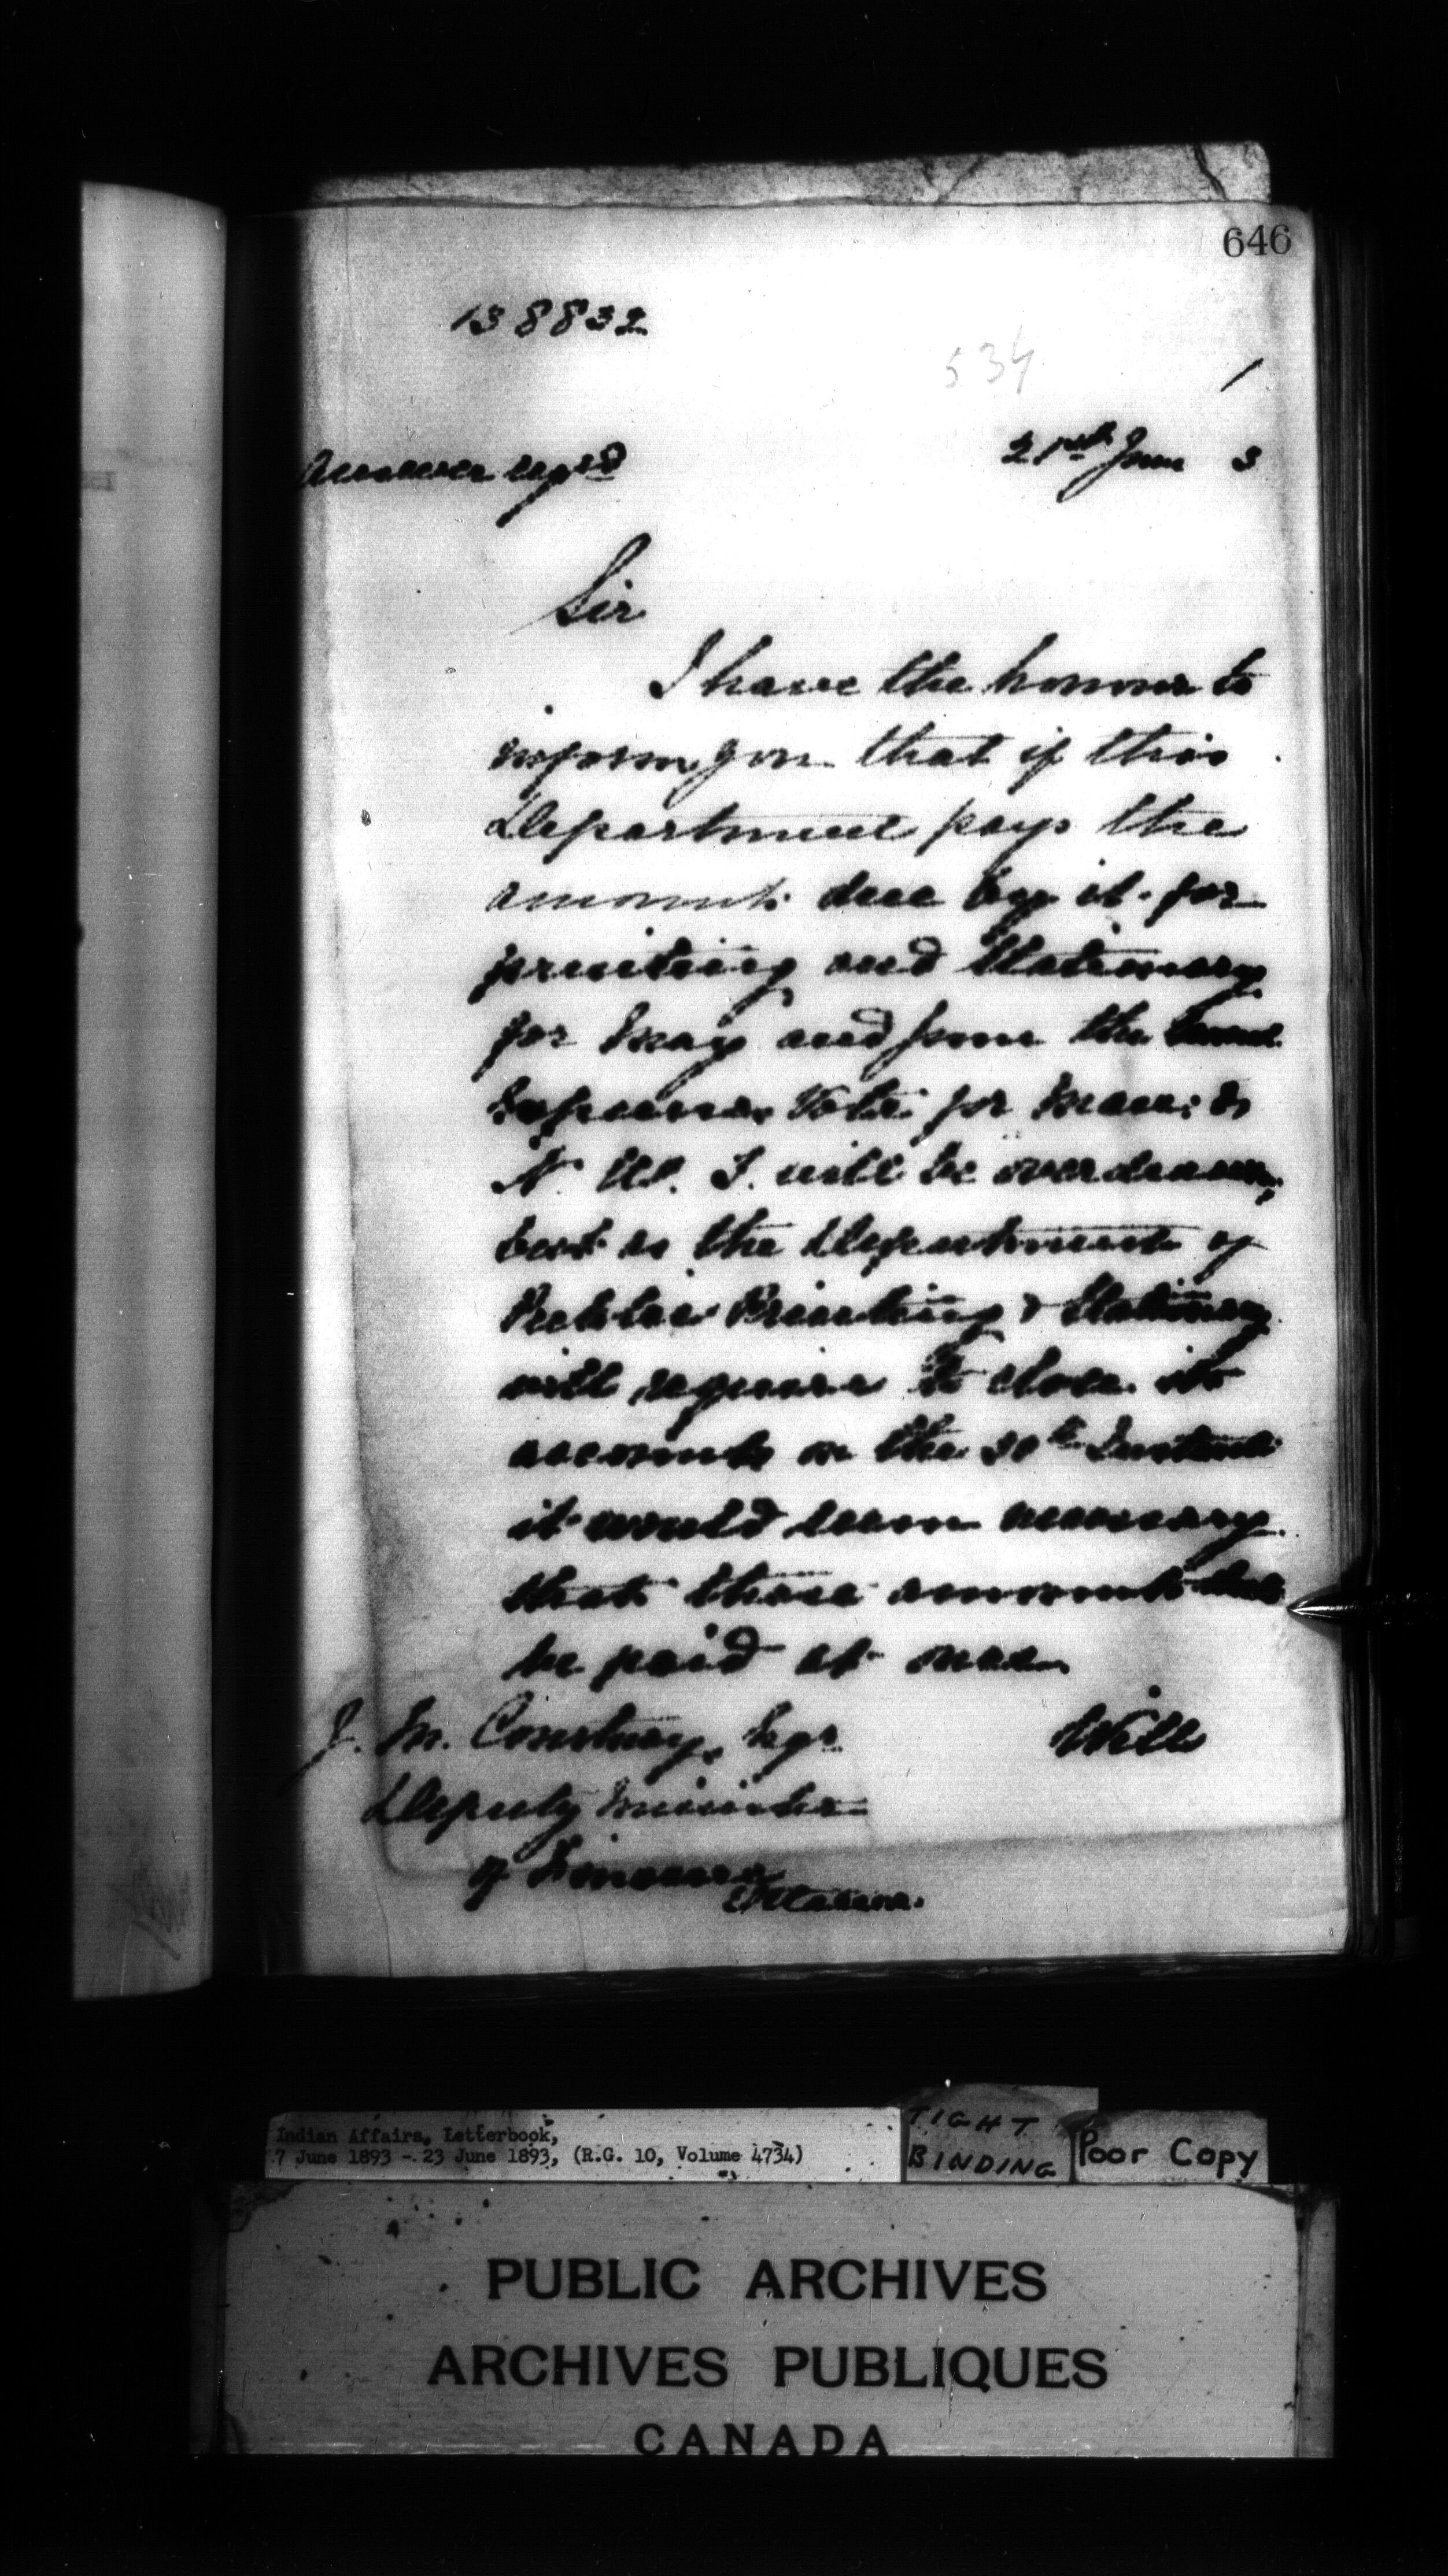 646
138832
534
/
Answer reqrd
21st June 3
Sir
I have the honour to
inform you that if this
Department pays the
amounts due by it for
printing and Stationery
for May and June the
Expenses Vote for Man: &
N. W. T. will be overdrawn,
but as the Department of
Public Printing & Stationery
will require to close its
accounts on the 30th Instant
it would seem necessary
that those amounts
be paid at once
J. M. Courtney, Esqr
Deputy Minister
of Finance
Ottawa.
Indian Affairs, Letterbook,
7 June 1893 - 23 June 1893, (R.G. 10, Volume 4734)
TIGHT
BINDING
Poor Copy
PUBLIC ARCHIVES
ARCHIVES PUBLIQUES
CANADA